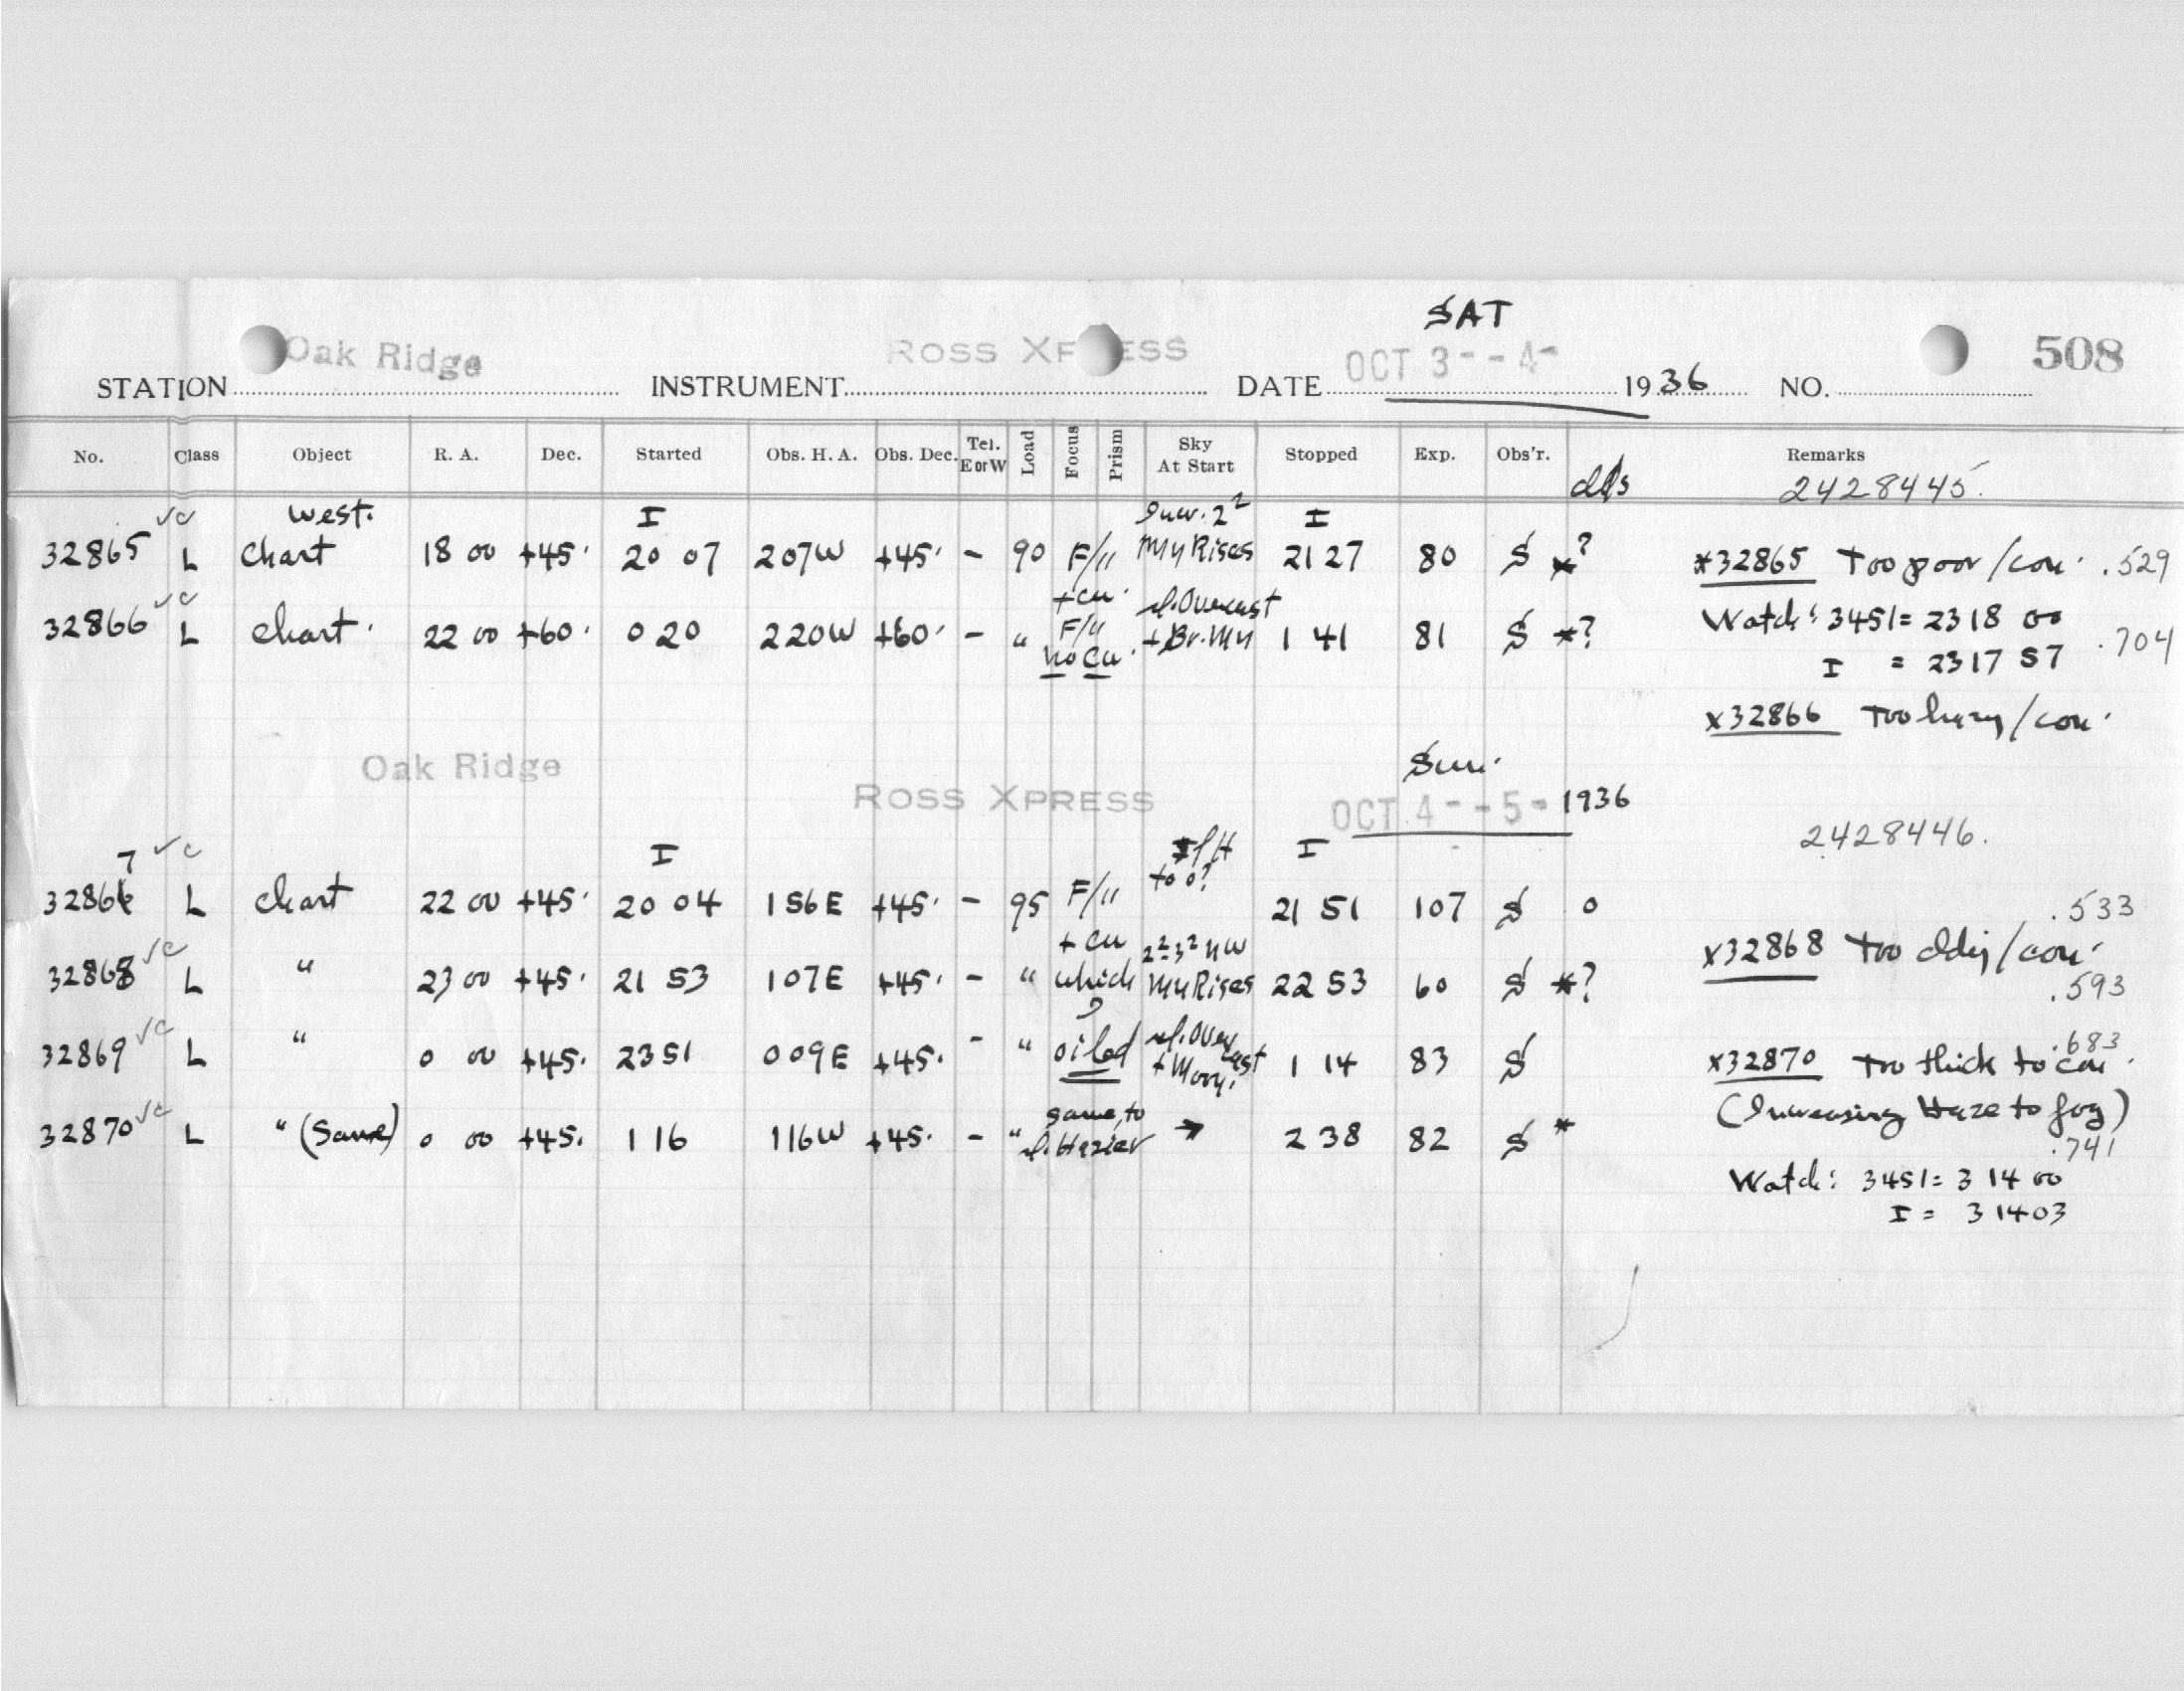 SAT
Oak Ridge ROSS XPRESS OCT 3 - - 4 - 508
STATION INSTRUMENT DATE 1936 NO.
No. Class Object R. A. Dec. Started Obs. H. A. Obs. Dec. Tel. E or W Load Focus Prism Sky At Start Stopped Exp. Obs'r. Remarks
2428445.
west. I I
32865 √c L Chart 18 00 +45 20 07 207W +45 - 90 F/11 2² My Rises 21 27 80 S *? *32865 Too poor /con .529
+ cu Overcast
32866 √c L Chart 22 00 +60 0 20 220W +60 - " F/11 + Br. My 1 41 81 S *? Watch: 3451 = 23 18 00 .704
no cu I = 23 17 57
x32866 Too hazy /con
Oak Ridge ROSS XPRESS Sun. OCT 4 - - 5 - 1936
2428446.
I to 0? I
32867 √c L Chart 22 00 +45 20 04 156E +45 - 95 F/11 21 51 107 S 0 .533
+ cu 2²-3² NW x32868 Too /con
32868 √c L " 23 00 +45 21 53 107E +45 - " which My Rises 22 53 60 S *? .593
32869 √c L " 0 00 +45 23 51 009E +45 - " oiled sl. Overcast + Moon 1 14 83 S .683
x32870 Too thick to con
same, to (Increasing Haze to fog)
32870 √c L " (Same) 0 00 +45 1 16 116W +45 - " sl. Hazier → 2 38 82 S * .741
Watch: 3451 = 3 14 00
I = 3 14 03